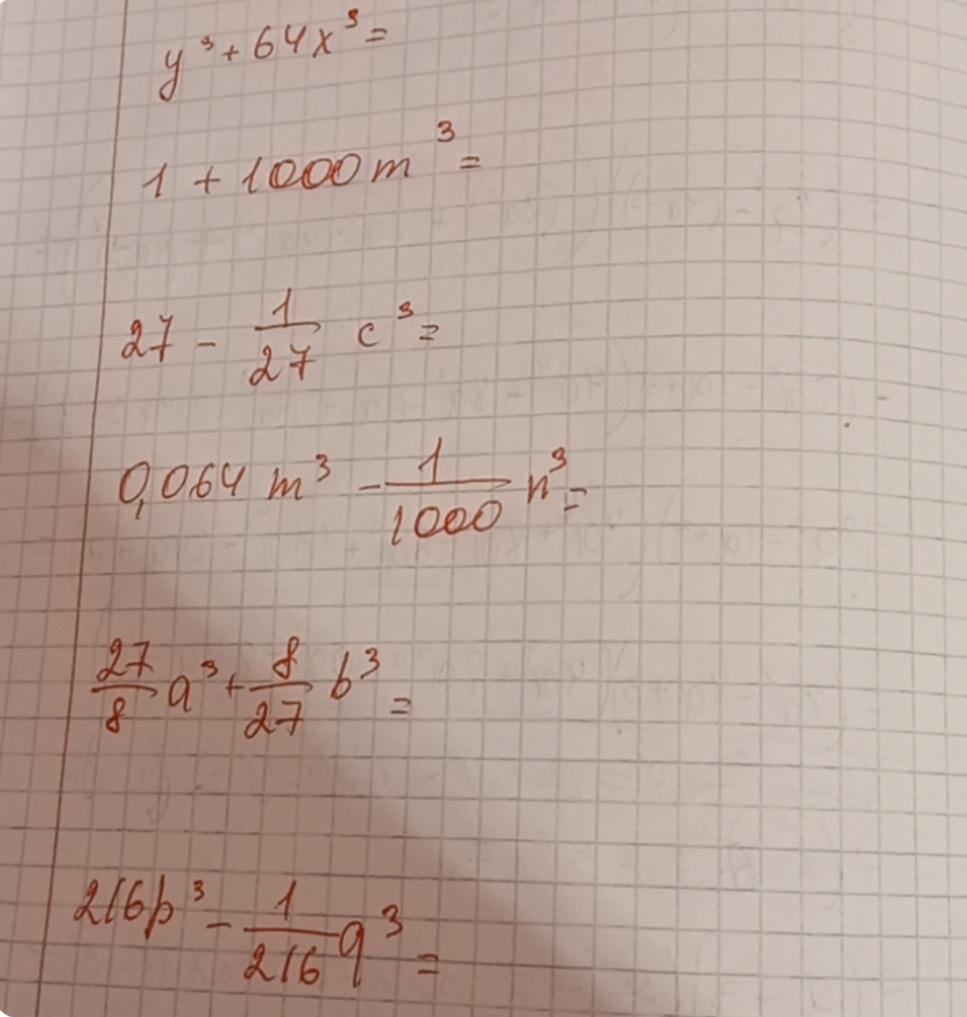 y³ + 64x³ =
1 + 1000m³ =
27 - 1/27 c³ =
0,064 m³ - 1/1000 n³ =
27/8 a³ + 8/27 b³ =
216p³ - 1/216 q³ =